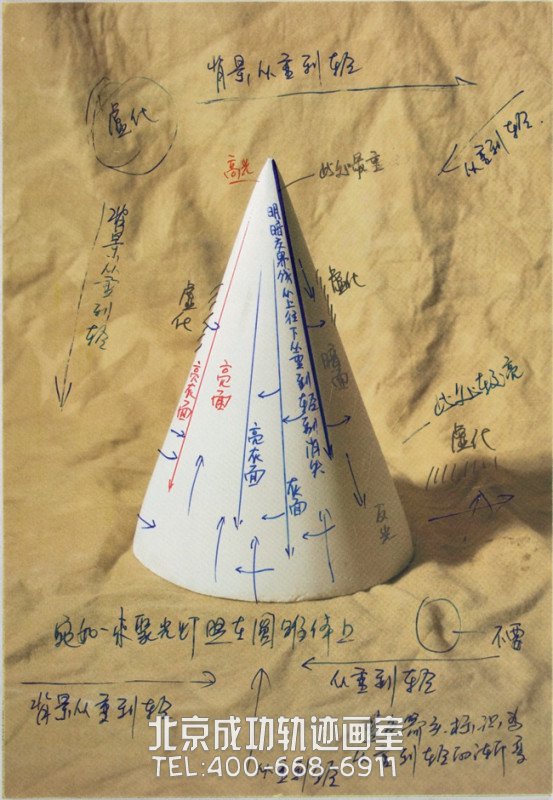 背景从重到轻
虚化
从重到轻
高光
此处最重
背景从重到轻
虚化
虚化
明暗交界线从上往下从重到轻到消失
暗面
亮灰面
亮面
亮灰面
灰面
此处较亮
虚化
反光
宛如一束聚光灯照在圆锥体上
不要
从重到轻
背景从重到轻
从重到轻的渐变
北京成功轨迹画室
TEL:400-668-6911
从重到轻